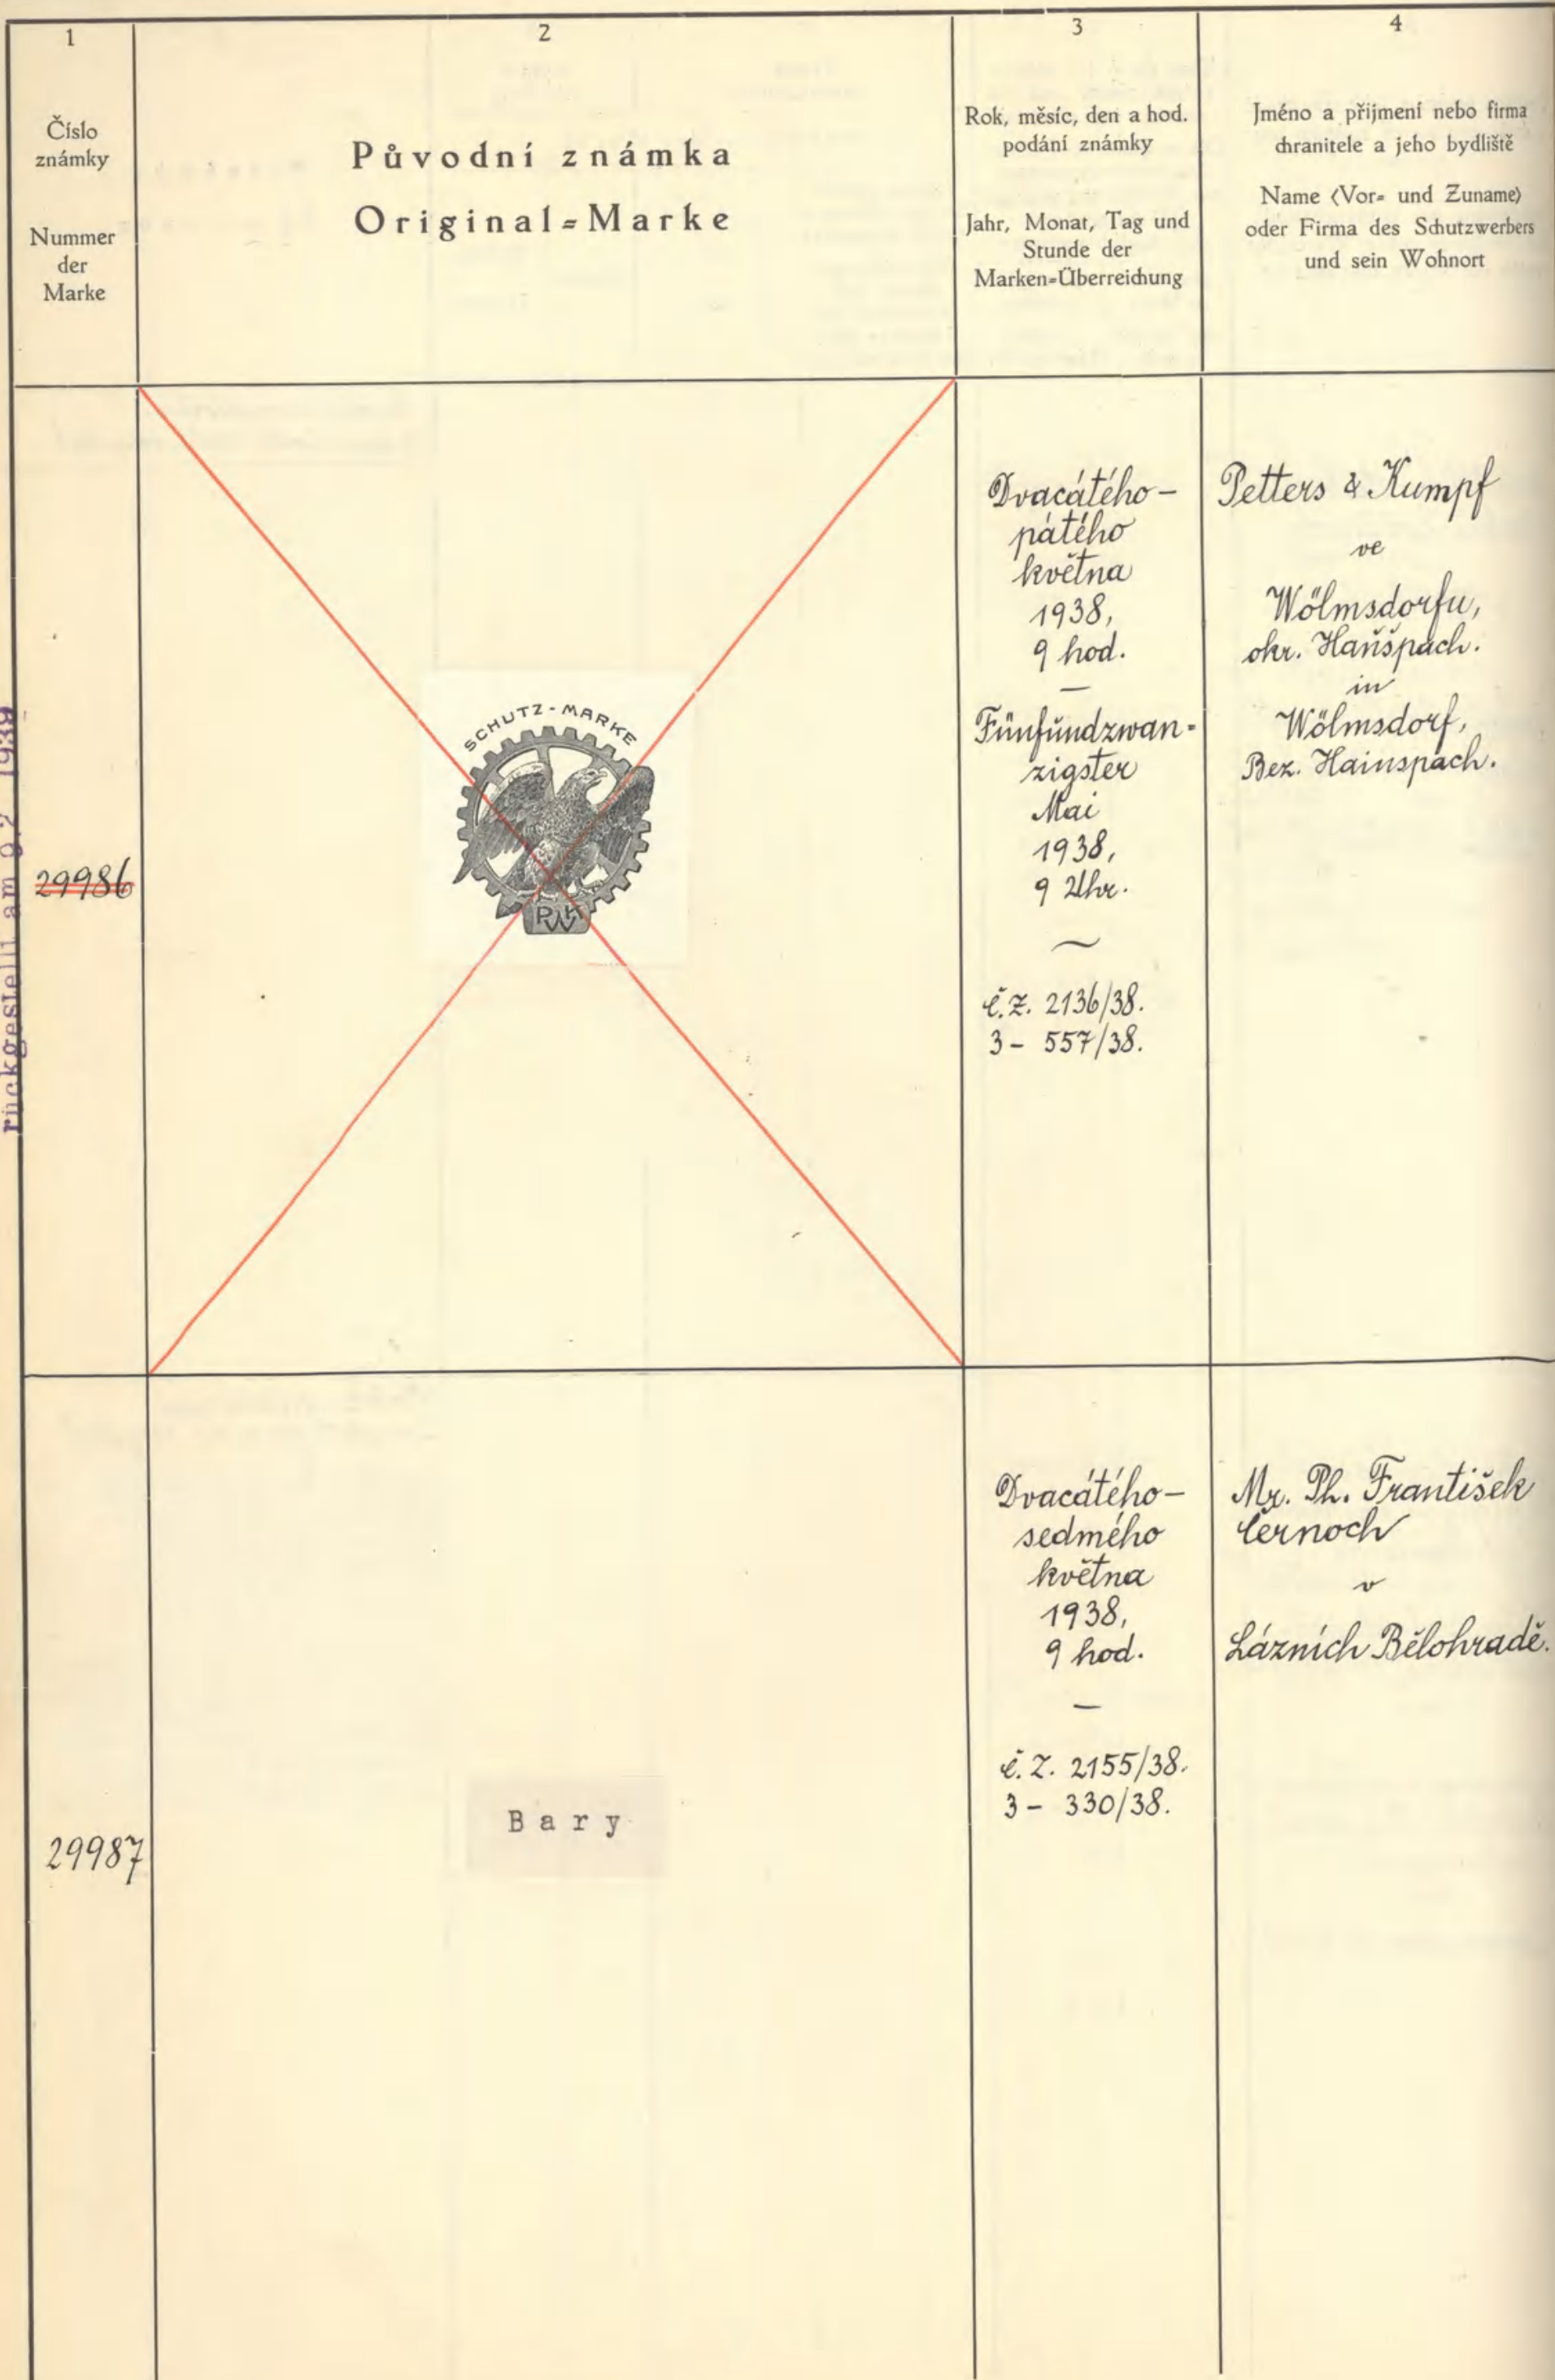 1
Číslo
známky
Nummer
der
Marke
2
Původní známka
Original=Marke
3
Rok, měsíc, den a hod.
podání známky
Jahr, Monat, Tag und
Stunde der
Marken=Überreichung
4
Jméno a přijmení nebo firma
chranitele a jeho bydliště
Name (Vor= und Zuname)
oder Firma des Schutzwerbers
und sein Wohnort
rückgestellt am 9.2. 1939
29986
SCHUTZ-MARKE
PWK
Dvacátého-
pátého
května
1938,
9 hod.
—
Fünfundzwan-
zigster
Mai
1938,
9 Uhr.
~
č.z. 2136/38.
3- 557/38.
Petters & Kumpf
ve
Wölmsdorfu,
okr. Haňšpach.
in
Wölmsdorf,
Bez. Hainspach.
29987
Bary
Dvacátého-
sedmého
května
1938,
9 hod.
—
č.z. 2155/38.
3- 330/38.
Mr. Ph. František
Černoch
v
Lázních Bělohradě.